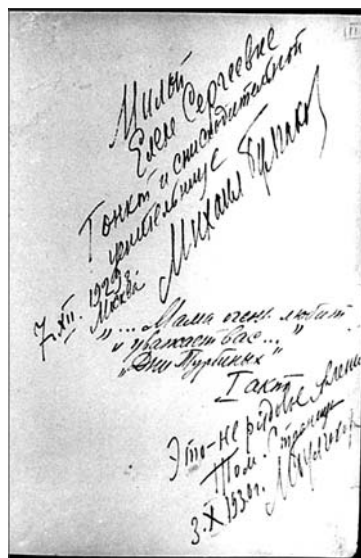 Милой
Елене Сергеевне
Тонкой и снисходительной
ценительнице
Михаил Булгаков
7.XII.1929 г.
Москва.
"...Мама очень любит
и уважает Вас..."
"Дни Турбиных"
I акт
Это – не рядовое
Том.
3.X.1930г. МБулгаков